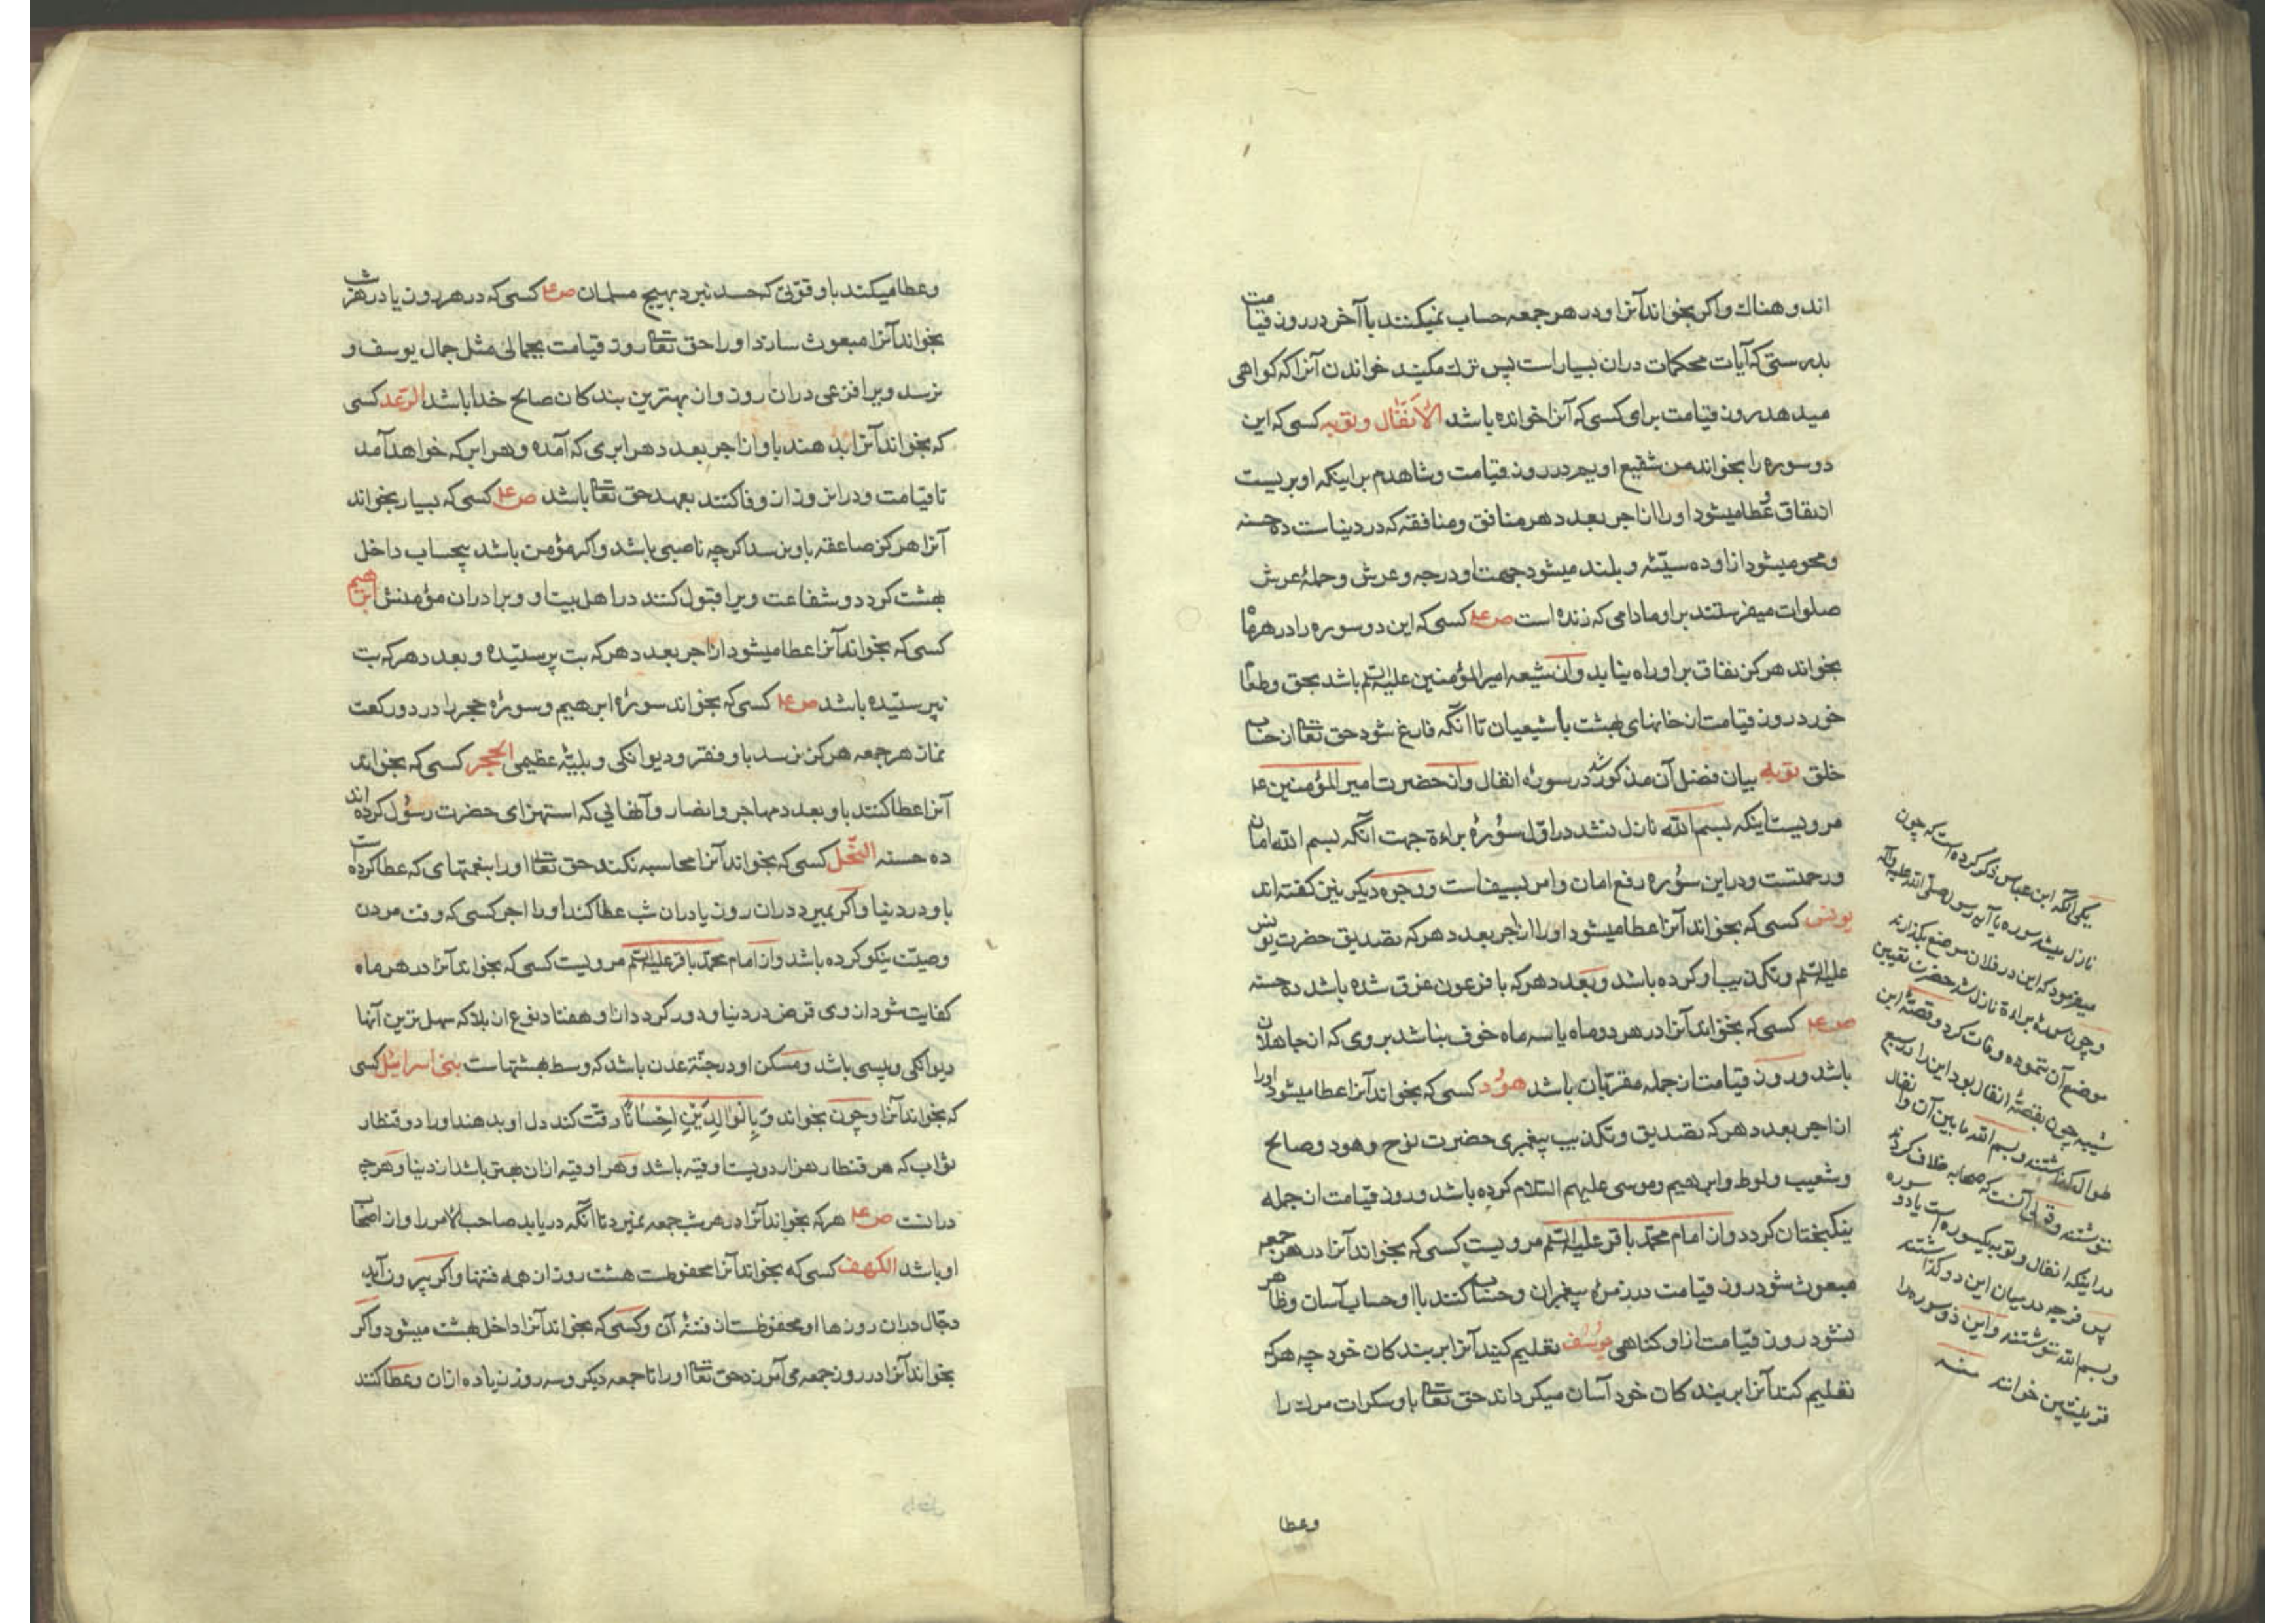 اند و هناك و اكر بخواند آنرا و در هر جمعه حساب نميكنند با آخر در روز قيامت
بدرستى كه آيات محكمات در ان بسيار است پس ترك مكنيد خواندن آنرا كه كواهى
ميدهد روز قيامت براى كسى كه آنرا خوانده باشد الانفال و توبه كسى كه اين
دو سوره را بخواند من شفيع اويم در روز قيامت و شاهدم براينكه او بريست
از نفاق و عطا ميشود او را از اجر بعدد هر منافق و منافقه كه در دنياست ده حسنه
و محو ميشود از او ده سيّئه و بلند ميشود جهت او درجه و عرش و حملهٔ عرش
صلوات ميفرستند بر او مادامى كه زنده است ص ع كسى كه اين دو سوره را در هر ماه
بخواند هركز نفاق بر او راه نيابد و از شيعه امير المؤمنين عليه السّلم باشد بحق و طعام
خورد روز قيامت از خانهاى بهشت با شيعيان تا آنكه فارغ شود حق تعا از حساب
خلق توبه بيان فضل آن مذكور شد در سورۀ انفال و از حضرت امير المؤمنين ع
مرويست اينكه بسم الله نازل نشد در اوّل سورۀ براءة جهت آنكه بسم الله امان
و رحمتست و در اين سوره رفع امان و امر بسيفاست و وجوه ديكر نيز كفته اند
يونس كسى كه بخواند آنرا عطا ميشود او را از اجر بعدد هركه تصديق حضرت يونس
عليه السّلم و تكذيب او كرده باشد و بعدد هركه با فرعون غرق شده باشد ده حسنه
ص ع كسى كه بخواند آنرا در هر دو ماه يا سه ماه خوف نباشد بر وى كه از جاهلان
باشد و روز قيامت از جمله مقرّبان باشد هود كسى كه بخواند آنرا عطا ميشود او را
از اجر بعدد هركه تصديق و تكذيب پيغمبرى حضرت نوح و هود و صالح
و شعيب و لوط و ابرهيم و موسى عليهم السّلام كرده باشد و روز قيامت از جمله
نيكبختان كردد و از امام محمّد باقر عليه السّلم مرويست كسى كه بخواند آنرا در هر جمعه
مبعوث شود روز قيامت در زمرۀ پيغمبران و حساب كنند با او حساب آسان و ظاهر
نشود روز قيامت از او كناهى يوسف تعليم كنيد آنرا بر بندكان خود چه هركه
تعليم كند آنرا بر بندكان خود آسان ميكرداند حق تعا باو سكرات مرك را
وعطا
يكى آنكه ابن عباس ذكر كرده است كه چون
نازل ميشد سوره يا آيه رسول صلّى الله عليه وآله
ميفرمود كه اين در فلان موضع بكذاريد
و چون سورۀ براءة نازل شد حضرت تعيين
موضع آن ننموده وفات كرد و قصّهٔ اين
شبيه چون بقصّهٔ انفال بود اين را در سبع
طوال كذاشتند و بسم الله ما بين آن و انفال
ننوشتند و قولى آنست كه صحابه خلاف كردند
در اينكه انفال و توبه يكسوره است يا دو سوره
پس فرجه در ميان اين دو كذاشتند
و بسم الله ننوشتند و اين دو سوره را
قرينتين خوانند منه
و عطا ميكند باو قوّتى كه حسد نبرد بهيچ مسلمان ص ع كسى كه در هر روز يا در هر شب
بخواند آنرا مبعوث سازد او را حق تعا روز قيامت بجمالى مثل جمال يوسف و
نرسد ويرا فزعى در ان روز و از بهترين بندكان صالح خدا باشد الرّعد كسى
كه بخواند آنرا بدهند باو از اجر بعدد هر ابرى كه آمده و هر ابر كه خواهد آمد
تا قيامت و در ان روز از وفاكنند بعهد حق تعا باشد ص ع كسى كه بسيار بخواند
آنرا هركز صاعقه باو نرسد اكرچه ناصبى باشد و اكر مؤمن باشد بيحساب داخل
بهشت كردد و شفاعت ويرا قبول كنند در اهل بيت او و برادران مؤمنش ابرهيم
كسى كه بخواند آنرا عطا ميشود از اجر بعدد هركه بت پرستيده و بعدد هركه بت
نپرستيده باشد ص ع كسى كه بخواند سورۀ ابرهيم و سورۀ حجر را در دو ركعت
نماز هر جمعه هركز نرسد باو فقر و ديوانكى و بليّهٔ عظيمى الحجر كسى كه بخواند
آنرا عطا كنند باو بعدد مهاجر و انصار و آنهايى كه استهزاى حضرت رسول كرده اند
ده حسنه النّحل كسى كه بخواند آنرا محاسبه نكند حق تعا او را بنعمتهاى كه عطا كرده است
باو در دنيا و اكر بميرد در ان روز يا در ان شب عطا كند او را اجر كسى كه وقت مردن
وصيّت نيكو كرده باشد و از امام محمّد باقر عليه السّلم مرويست كسى كه بخواند آنرا در هر ماه
كفايت شود از وى قرض در دنيا و دور كردد از او هفتاد نوع از بلا كه سهل ترين آنها
ديوانكى و پيسى باشد و مسكن او در جنّة عدن باشد كه وسط بهشتهاست بنى اسرائيل كسى
كه بخواند آنرا و چون بخواند وَبِالْوَالِدَيْنِ اِحْسَانًا رقّت كند دل او بدهند او را دو قنطار
ثواب كه هر قنطار هزار دويست اوقيه باشد و هر اوقيه از ان بهتر باشد از دنيا و هرچه
در انست ص ع هركه بخواند آنرا در هر شب جمعه نميرد تا آنكه دريابد صاحب الامر را و از اصحاب
او باشد الكهف كسى كه بخواند آنرا محفوظست هشت روز از همه فتنها و اكر بيرون آيد
دجّال در ان روزها او محفوظست از فتنهٔ آن و كسى كه بخواند آنرا داخل بهشت ميشود و اكر
بخواند آنرا در روز جمعه مى آمرزد حق تعا او را تا جمعه ديكر و سه روز زياده از ان و عطا كنند